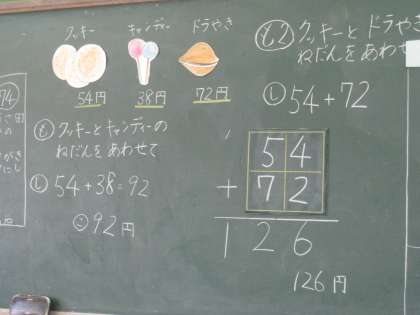 クッキー キャンディー ドラやき
54円 38円 72円
も クッキーとキャンディーの
ねだんをあわせて
し 54+38=92
こ 92円
も2 クッキーとドラやき
ねだんをあわせ
し 54+72
54
+72
126
126円